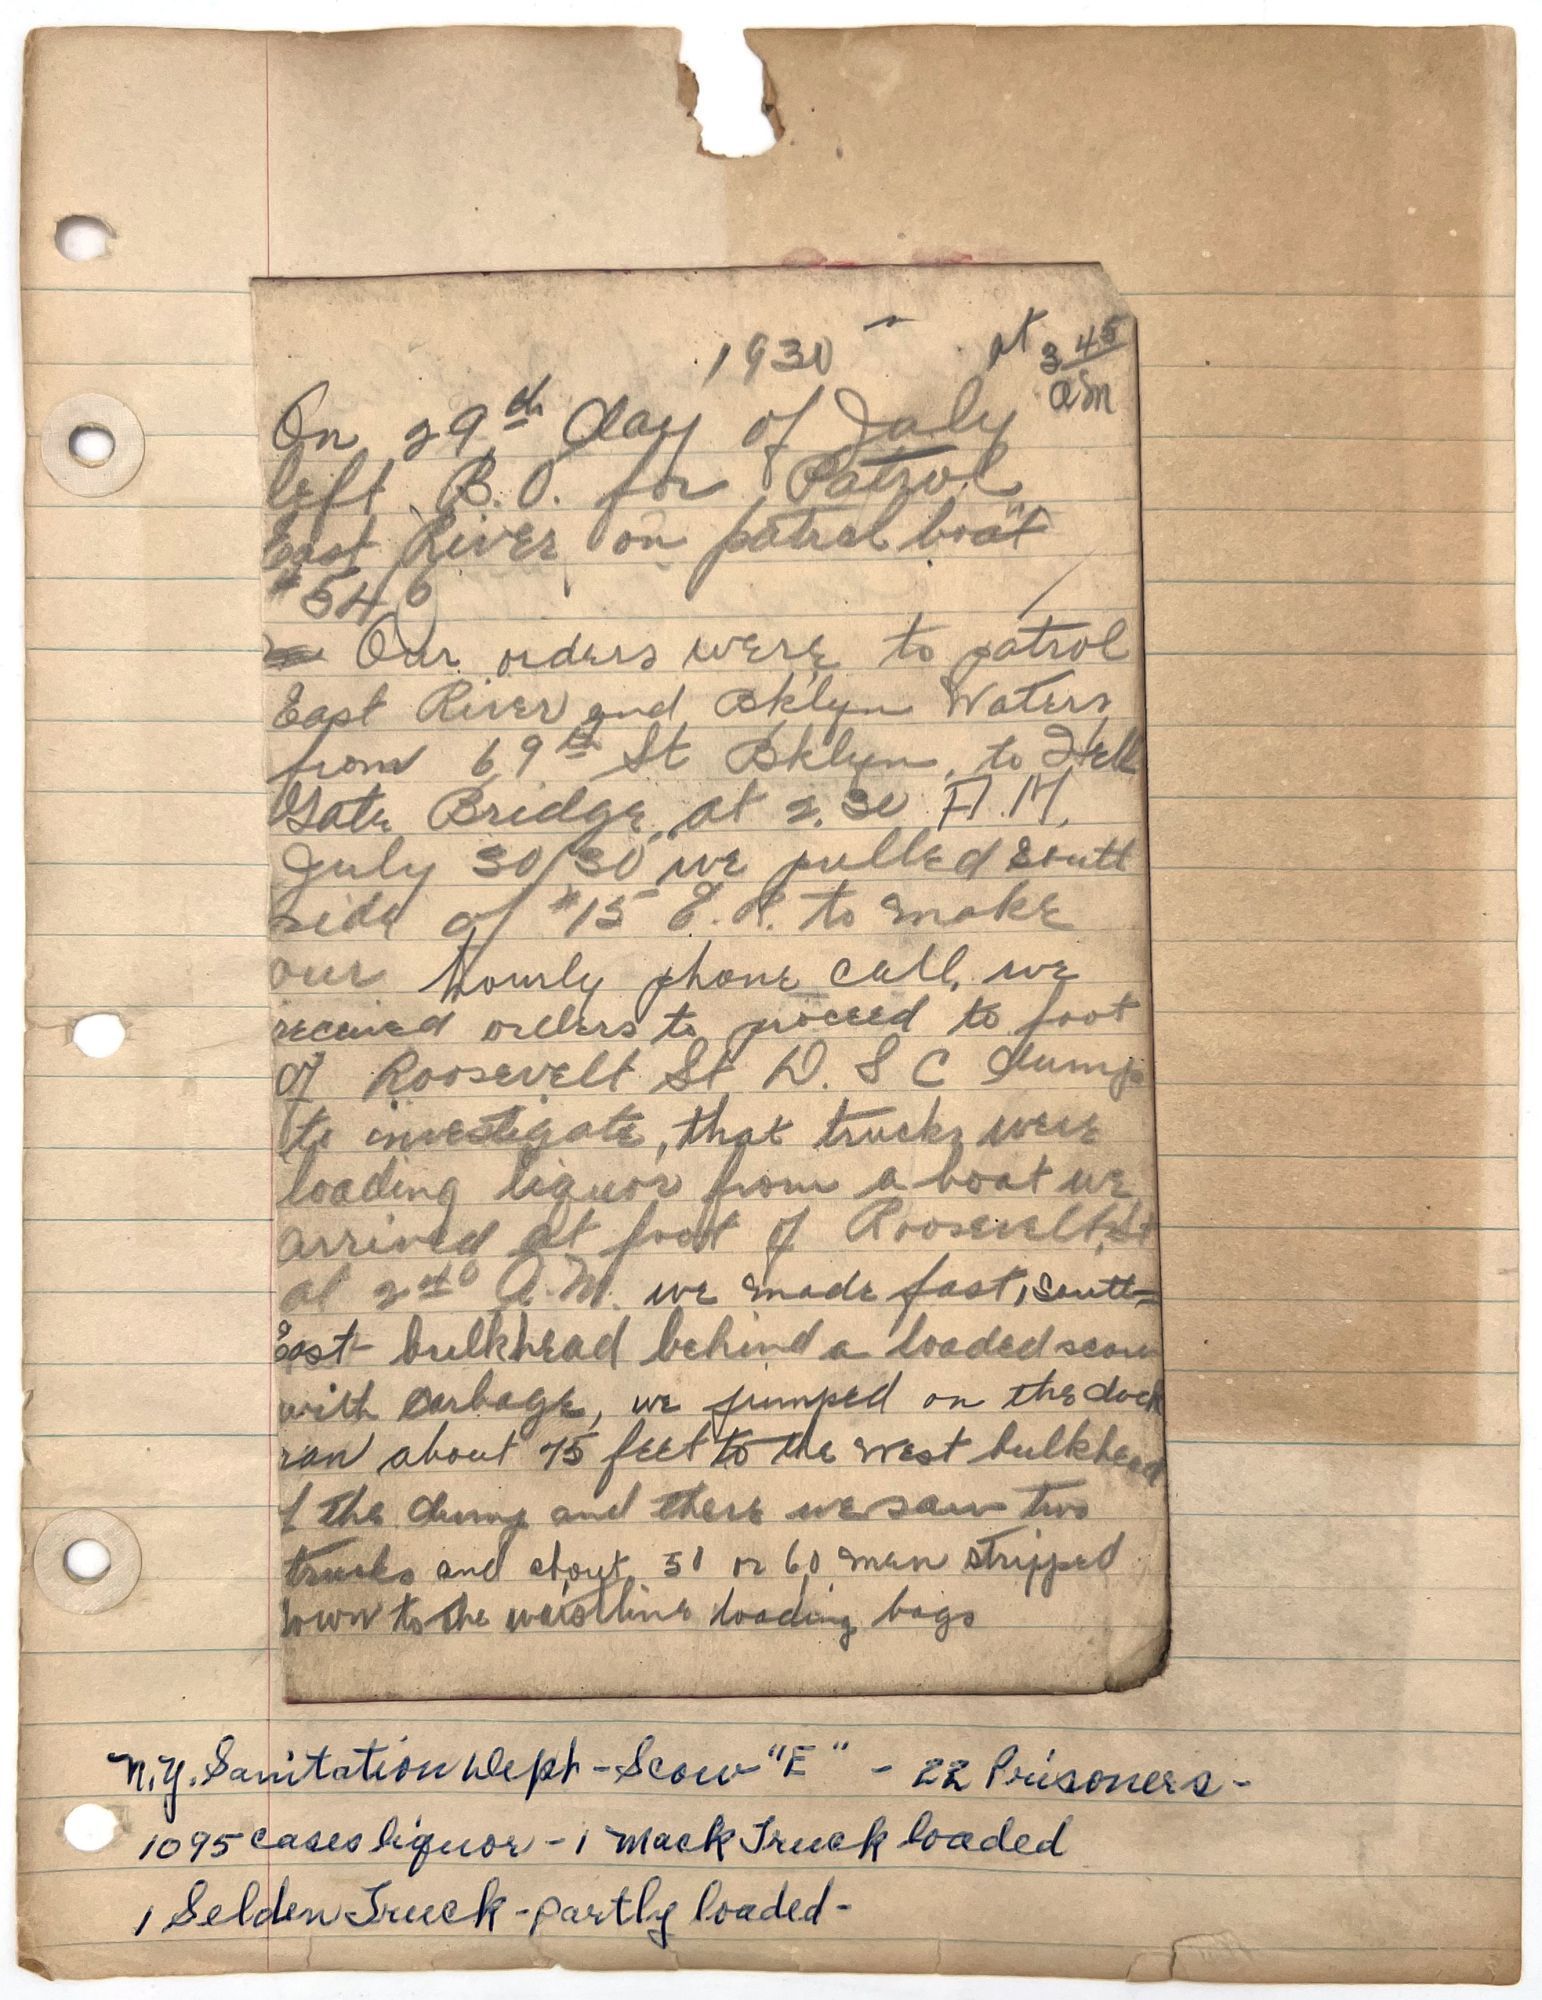 1930 at 3 45 AM
On 29th day of July
left B.O. for Patrol
East River on patrol boat
#546
Our orders were to patrol
East River and Bklyn Waters
from 69th St Bklyn, to Hell
Gate Bridge, at 2.30 A.M.
July 30/30 we pulled south
side of #15 E.R. to make
our hourly phone call, we
received orders to proceed to foot
of Roosevelt St D.S C dump
to investigate, that trucks were
loading liquor from a boat we
arrived at foot of Roosevelt St
at 2 40 A.M. we made fast, south-
East bulkhead behind a loaded scow
with Garbage, we jumped on the dock
ran about 75 feet to the west bulkhead
of the dump and there we saw two
trucks and about 50 or 60 men stripped
down to the waistline loading bags
N.Y. Sanitation Dept - Scow "E" - 22 Prisoners -
1095 cases liquor - 1 Mack Truck loaded
1 Selden Truck - partly loaded -